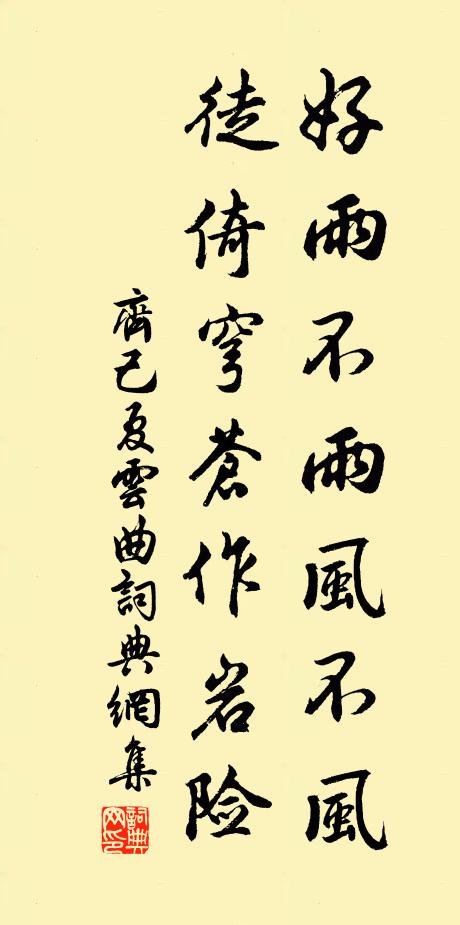 好雨不雨風不風
徒倚穹蒼作岩險
齊己夏雲曲詞典網集
詞典網印